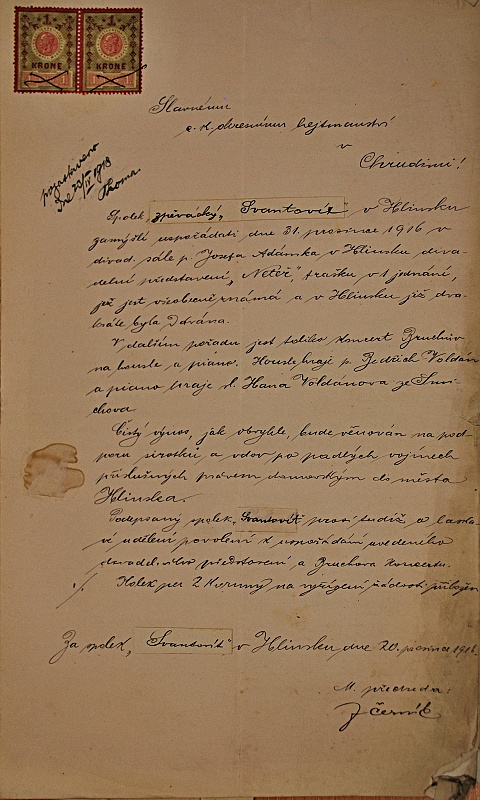 1 1
KRONE KRONE
Slavnému
c. k. okresnímu hejtmanství
v
Chrudimi!
pozastaveno
Dne 23/IV 1918
Spolek zpěvácký „Svantovít“ v Hlinsku
zamýšlí uspořádati dne 31. prosince 1916 v
divad. sále p. Josefa Adámka v Hlinsku diva-
delní představení „Neteř“, frašku v 1 jednání,
jež jest všeobecně známá a v Hlinsku již dva-
kráte byla dávána.
V dalším pořadu jest toliko koncert Bruchův
na housle a piano. Housle hraje p. Bedřich Voldán
a piano hraje sl. Hana Voldánova ze Smí-
chova.
Čistý výnos, jak obvykle, bude věnován na pod-
poru sirotků a vdov po padlých vojínech
příslušných právem domovským do města
Hlinska.
Podepsaný spolek „Svantovít“ prosí tudíž o laska-
vé udělení povolení k uspořádání uvedeného
divadel. představení a Bruchova koncertu.
Kolek per 2 Koruny na vyřízení žádosti přiložen
Za spolek „Svantovít“ v Hlinsku dne 20. prosince 1916.
M. předseda:
J Černík